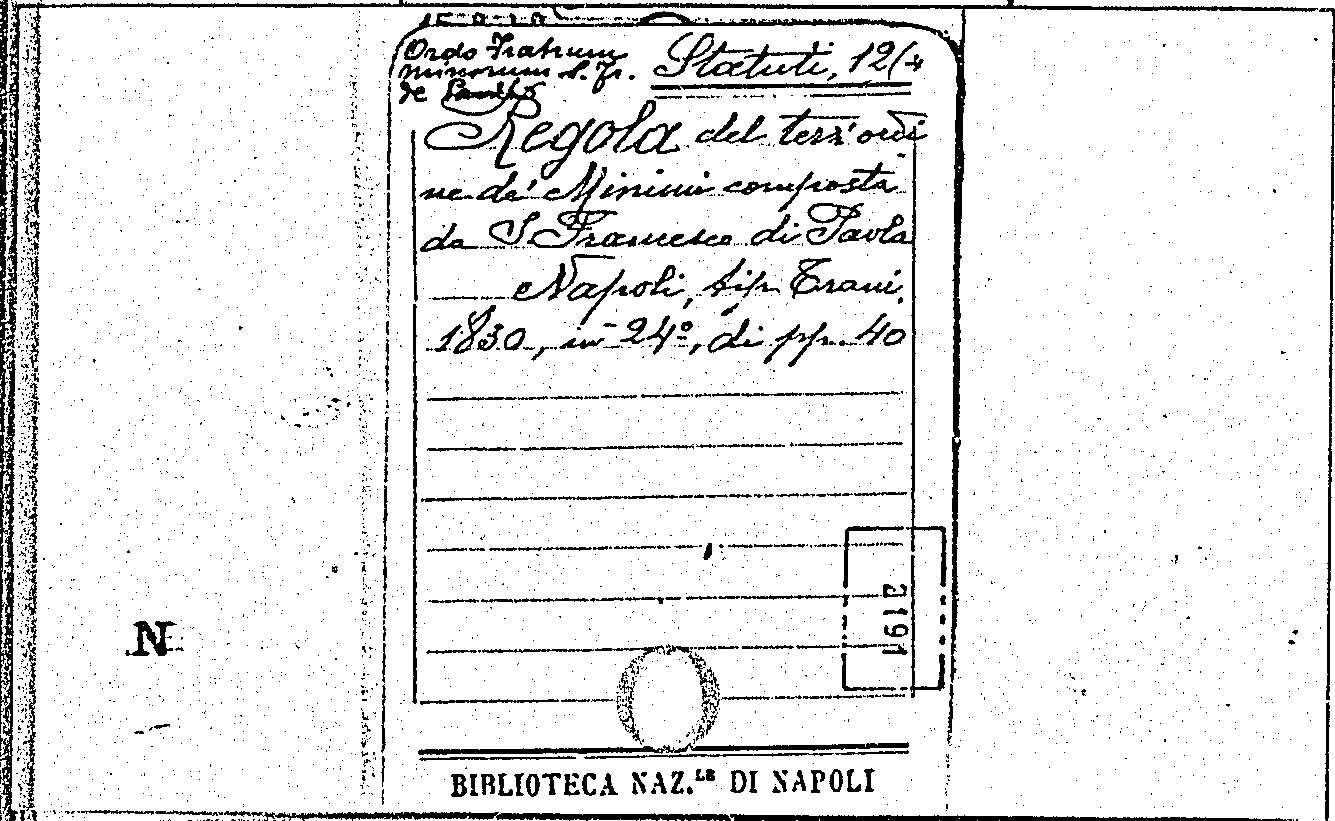 Ordo Fratrum
minorum S. Fr.
de
Statuti, 12/
Regola del terz'ordi
ne de' Minimi composta
da S Francesco di Paola
Napoli, tip. Trani,
1830, in 24º, di pp. 40
2191
N
BIBLIOTECA NAZ.LE DI NAPOLI